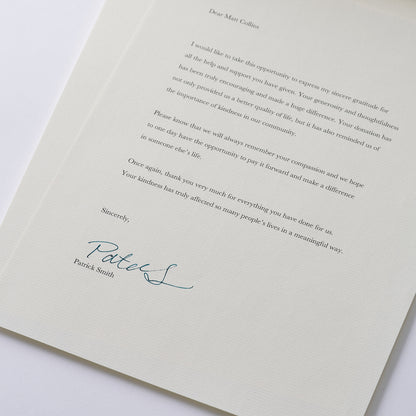 Dear Matt Collins
I would like to take this opportunity to express my sincere gratitude for
all the help and support you have given. Your generosity and thoughtfulness
has been truly encouraging and made a huge difference. Your donation has
not only provided us a better quality of life, but it has also reminded us of
the importance of kindness in our community.
Please know that we will always remember your compassion and we hope
to one day have the opportunity to pay it forward and make a difference
in someone else's life.
Once again, thank you very much for everything you have done for us.
Your kindness has truly affected so many people's lives in a meaningful way.
Sincerely,
Patrick Smith